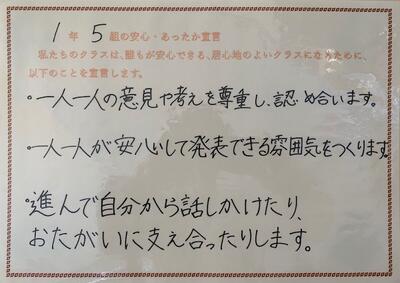 1年 5組の安心・あったか宣言
私たちのクラスは、誰もが安心できる、居心地のよいクラスになるために、
以下のことを宣言します。
・一人一人の意見や考えを尊重し、認め合います。
・一人一人が安心して発表できる雰囲気をつくります。
・進んで自分から話しかけたり、
おたがいに支え合ったりします。